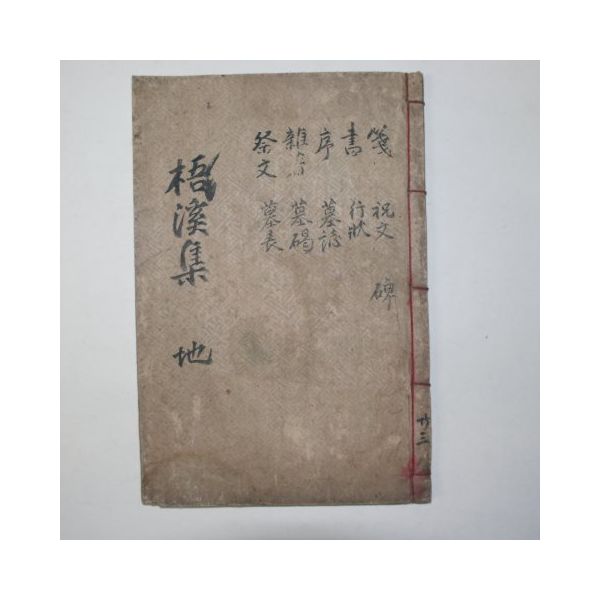 箋 祝文 碑
書 行狀
序 墓誌
雜著 墓碣
祭文 墓表
梧溪集 地
共三